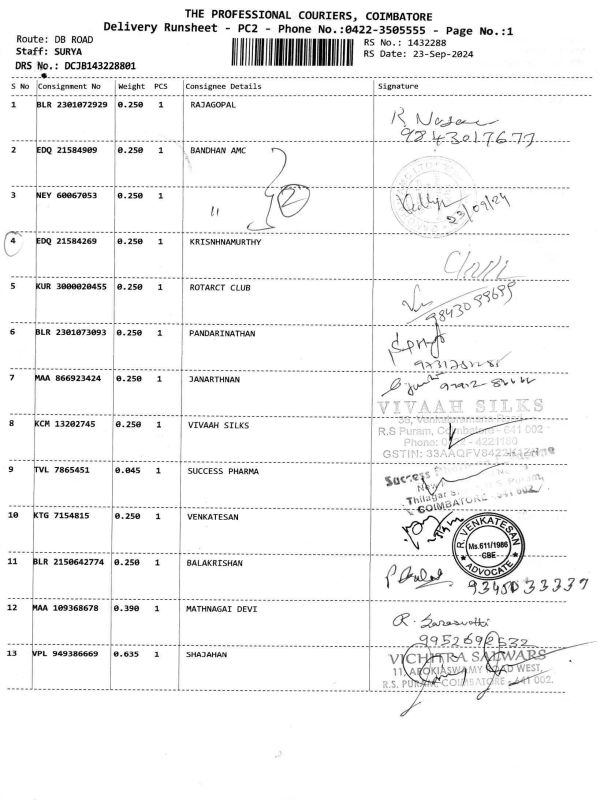 THE PROFESSIONAL COURIERS, COIMBATORE
Delivery Runsheet - PC2 - Phone No.:0422-3505555 - Page No.:1
Route: DB ROAD
Staff: SURYA
DRS No.: DCJB143228801
RS No.: 1432288
RS Date: 23-Sep-2024
S No Consignment No Weight PCS Consignee Details Signature
1 BLR 2301072929 0.250 1 RAJAGOPAL
9843017677
2 EDQ 21584909 0.250 1 BANDHAN AMC
2
3 NEY 60067053 0.250 1 "
23/09/24
4 EDQ 21584269 0.250 1 KRISNHNAMURTHY
5 KUR 3000020455 0.250 1 ROTARCT CLUB
9843099699
6 BLR 2301073093 0.250 1 PANDARINATHAN
7 MAA 866923424 0.250 1 JANARTHNAN
VIVAAH SILKS
8 KCM 13202745 0.250 1 VIVAAH SILKS
R.S Puram, Coimbatore - 641 002
Phone: 4221160
GSTIN:
9 TVL 7865451 0.045 1 SUCCESS PHARMA
Success
Thilagar
COIMBATORE - 641 002.
10 KTG 7154815 0.250 1 VENKATESAN
R. VENKATESAN
Ms.611/1986
CBE
ADVOCATE
11 BLR 2150642774 0.250 1 BALAKRISHAN
12 MAA 109368678 0.390 1 MATHNAGAI DEVI
R. Saraswathi
9952692532
13 VPL 949386669 0.635 1 SHAJAHAN
VICHITRA SALWARS
11, AROKIASWAMY ROAD WEST,
R.S. PURAM, COIMBATORE - 641 002.